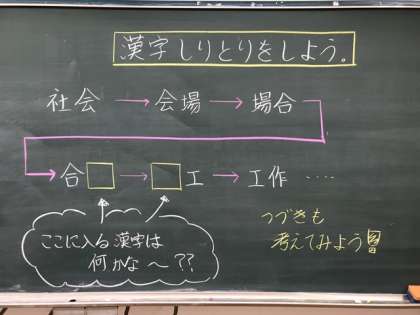 漢字しりとりをしよう。
社会→会場→場合
合□→□工→工作‥‥
ここに入る漢字は
何かな〜??
つづきも
考えてみよう